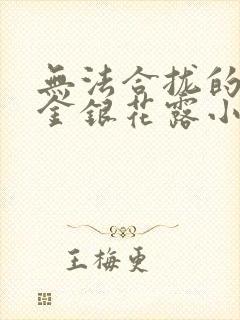 無法合拢的
金銀花露小
王梅更